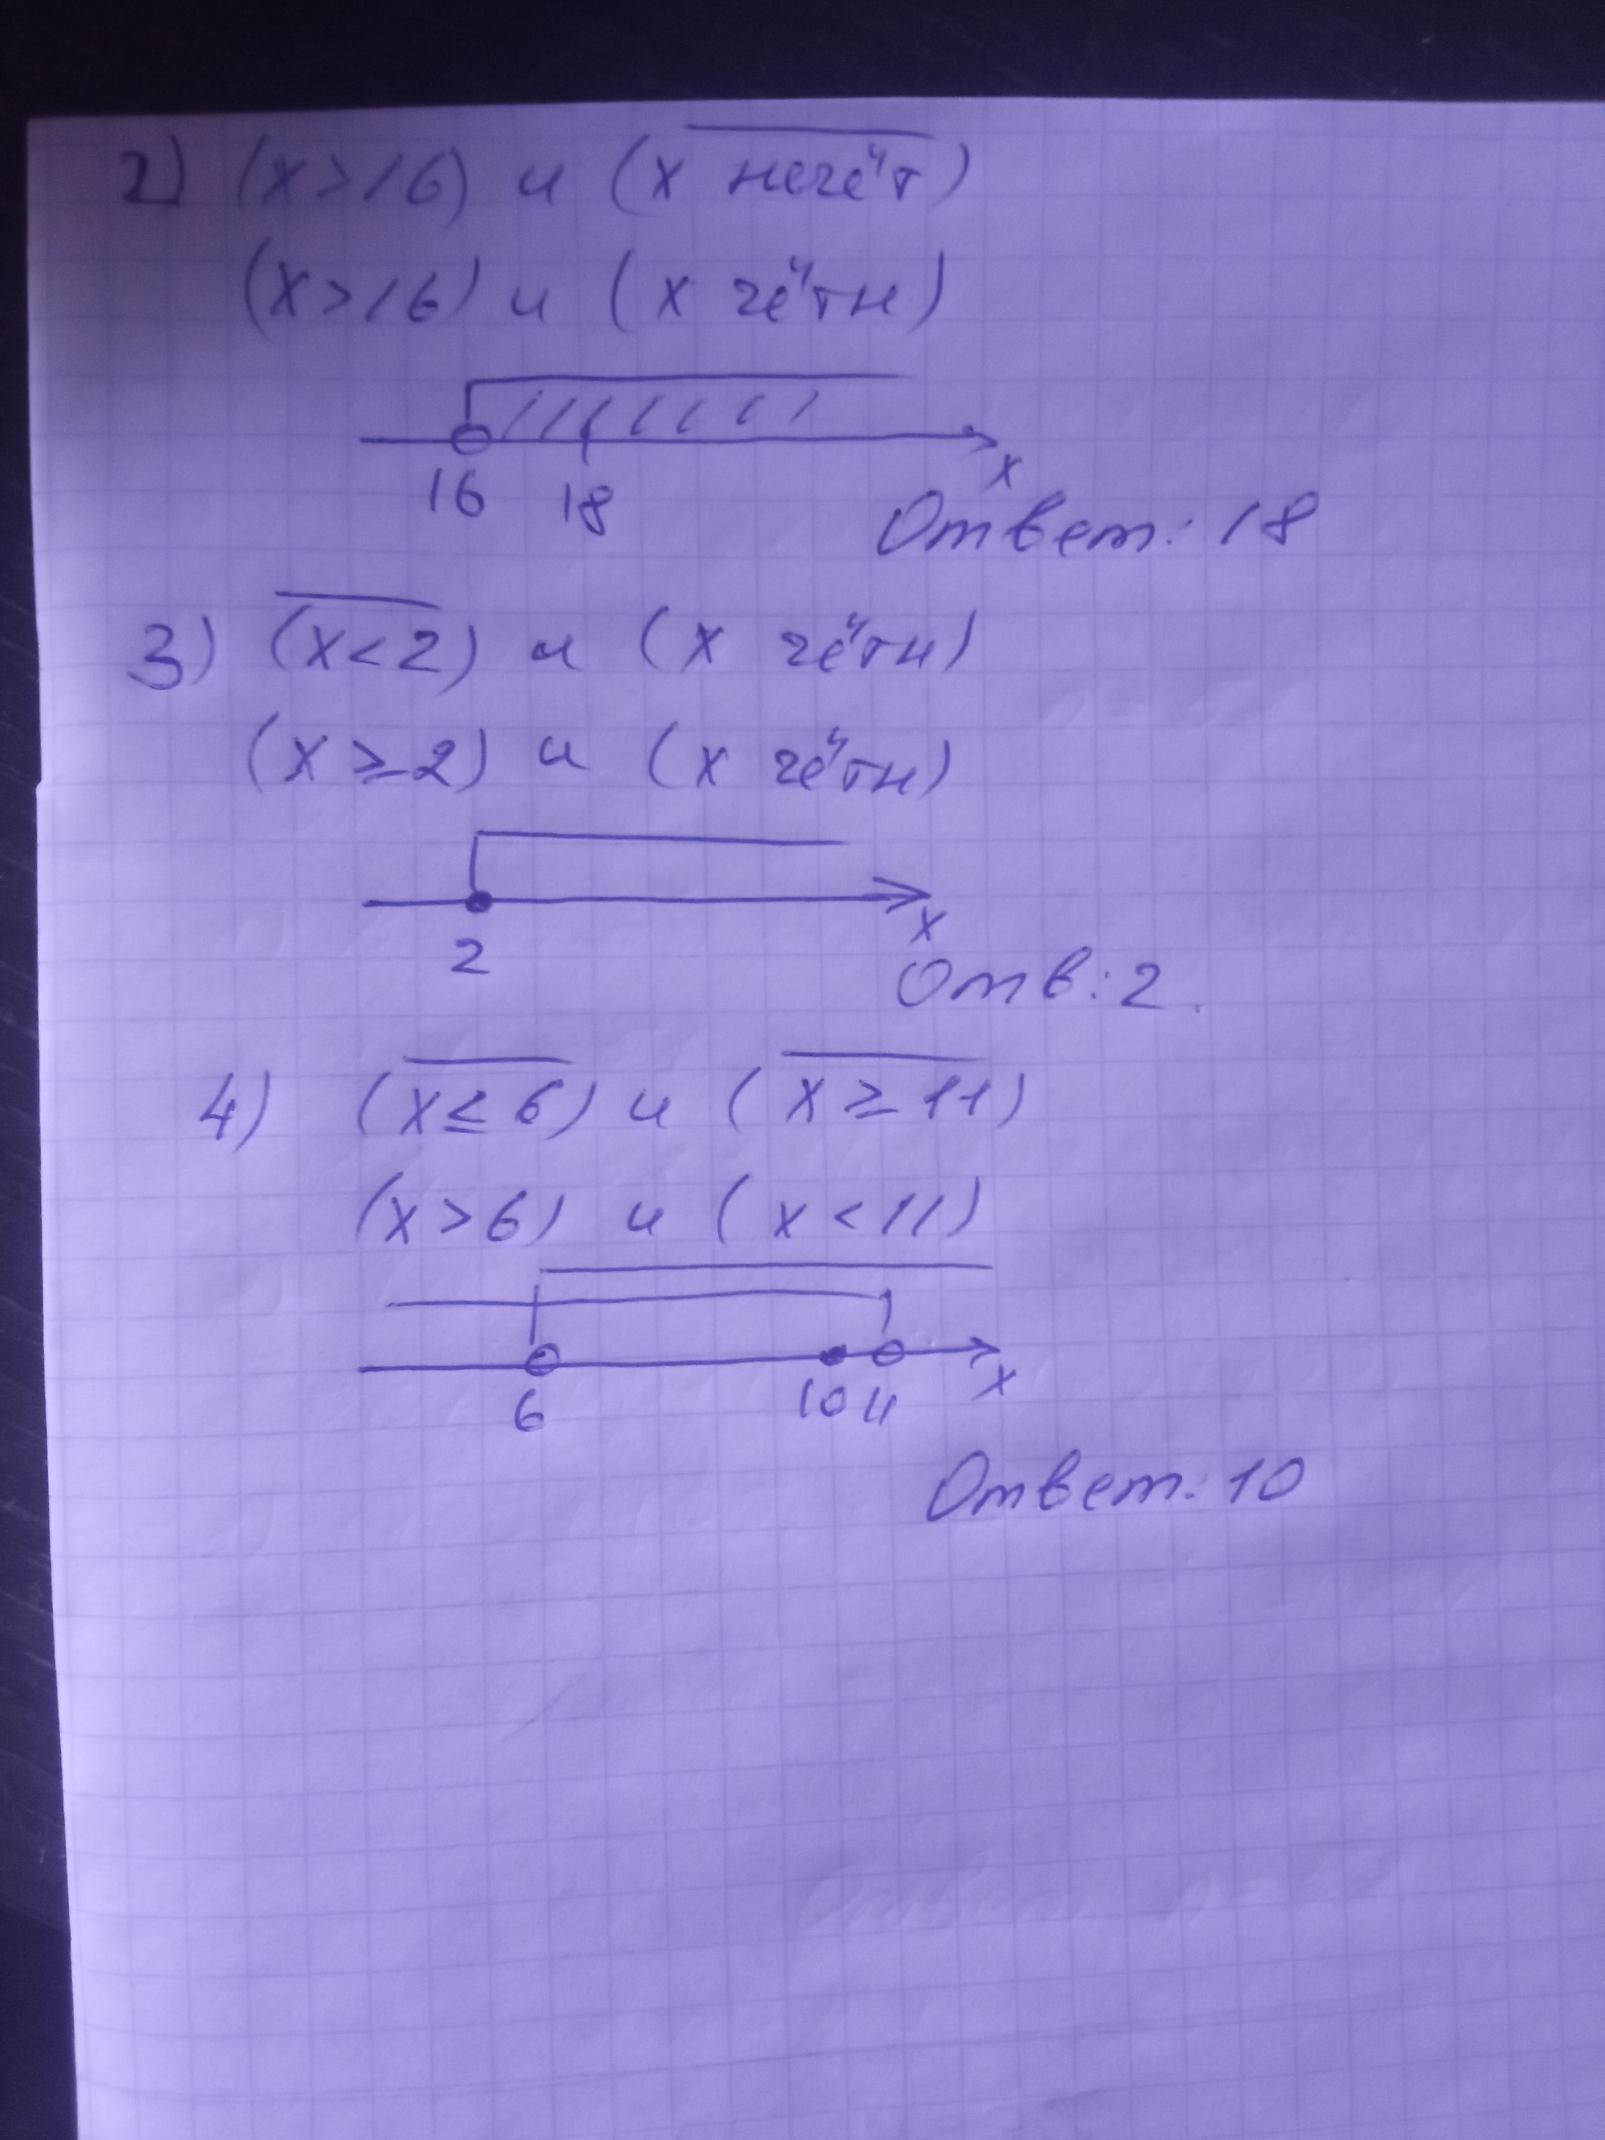 2) (x>16) и (x нечёт)
(x>16) и (x чётн)
16 18 x
Ответ: 18
3) (x<2) и (x чётн)
(x≥2) и (x чётн)
2 x
Отв: 2.
4) (x≤6) и (x≥11)
(x>6) и (x<11)
6 10 11 x
Ответ: 10